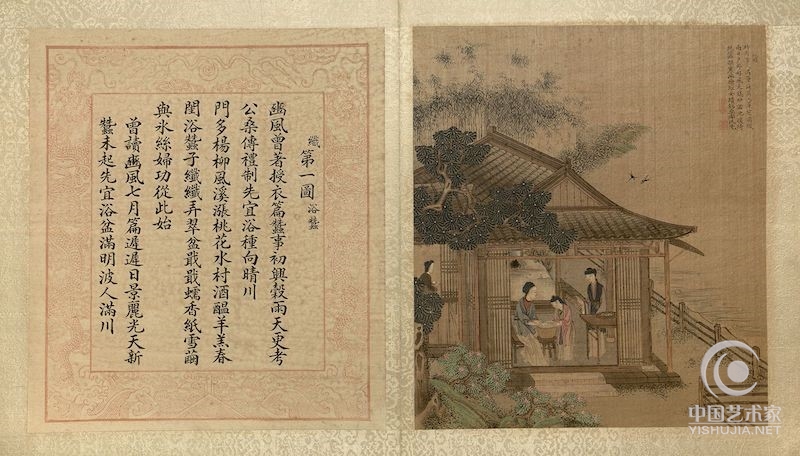 織 第一圖 浴蠶
豳風曾著授衣篇蠶事初興穀雨天更考
公桑傳禮制先宜浴種向晴川
門多楊柳風溪漲桃花水村酒醞羊羔春
閨浴蠶子纖纖弄翠盆戢戢蠕香紙雪繭
與氷絲婦功從此始
曾讀豳風七月篇遲遲日景麗光天新
蠶未起先宜浴盆滿明波人滿川
中国艺术家
YISHUJIA.NET